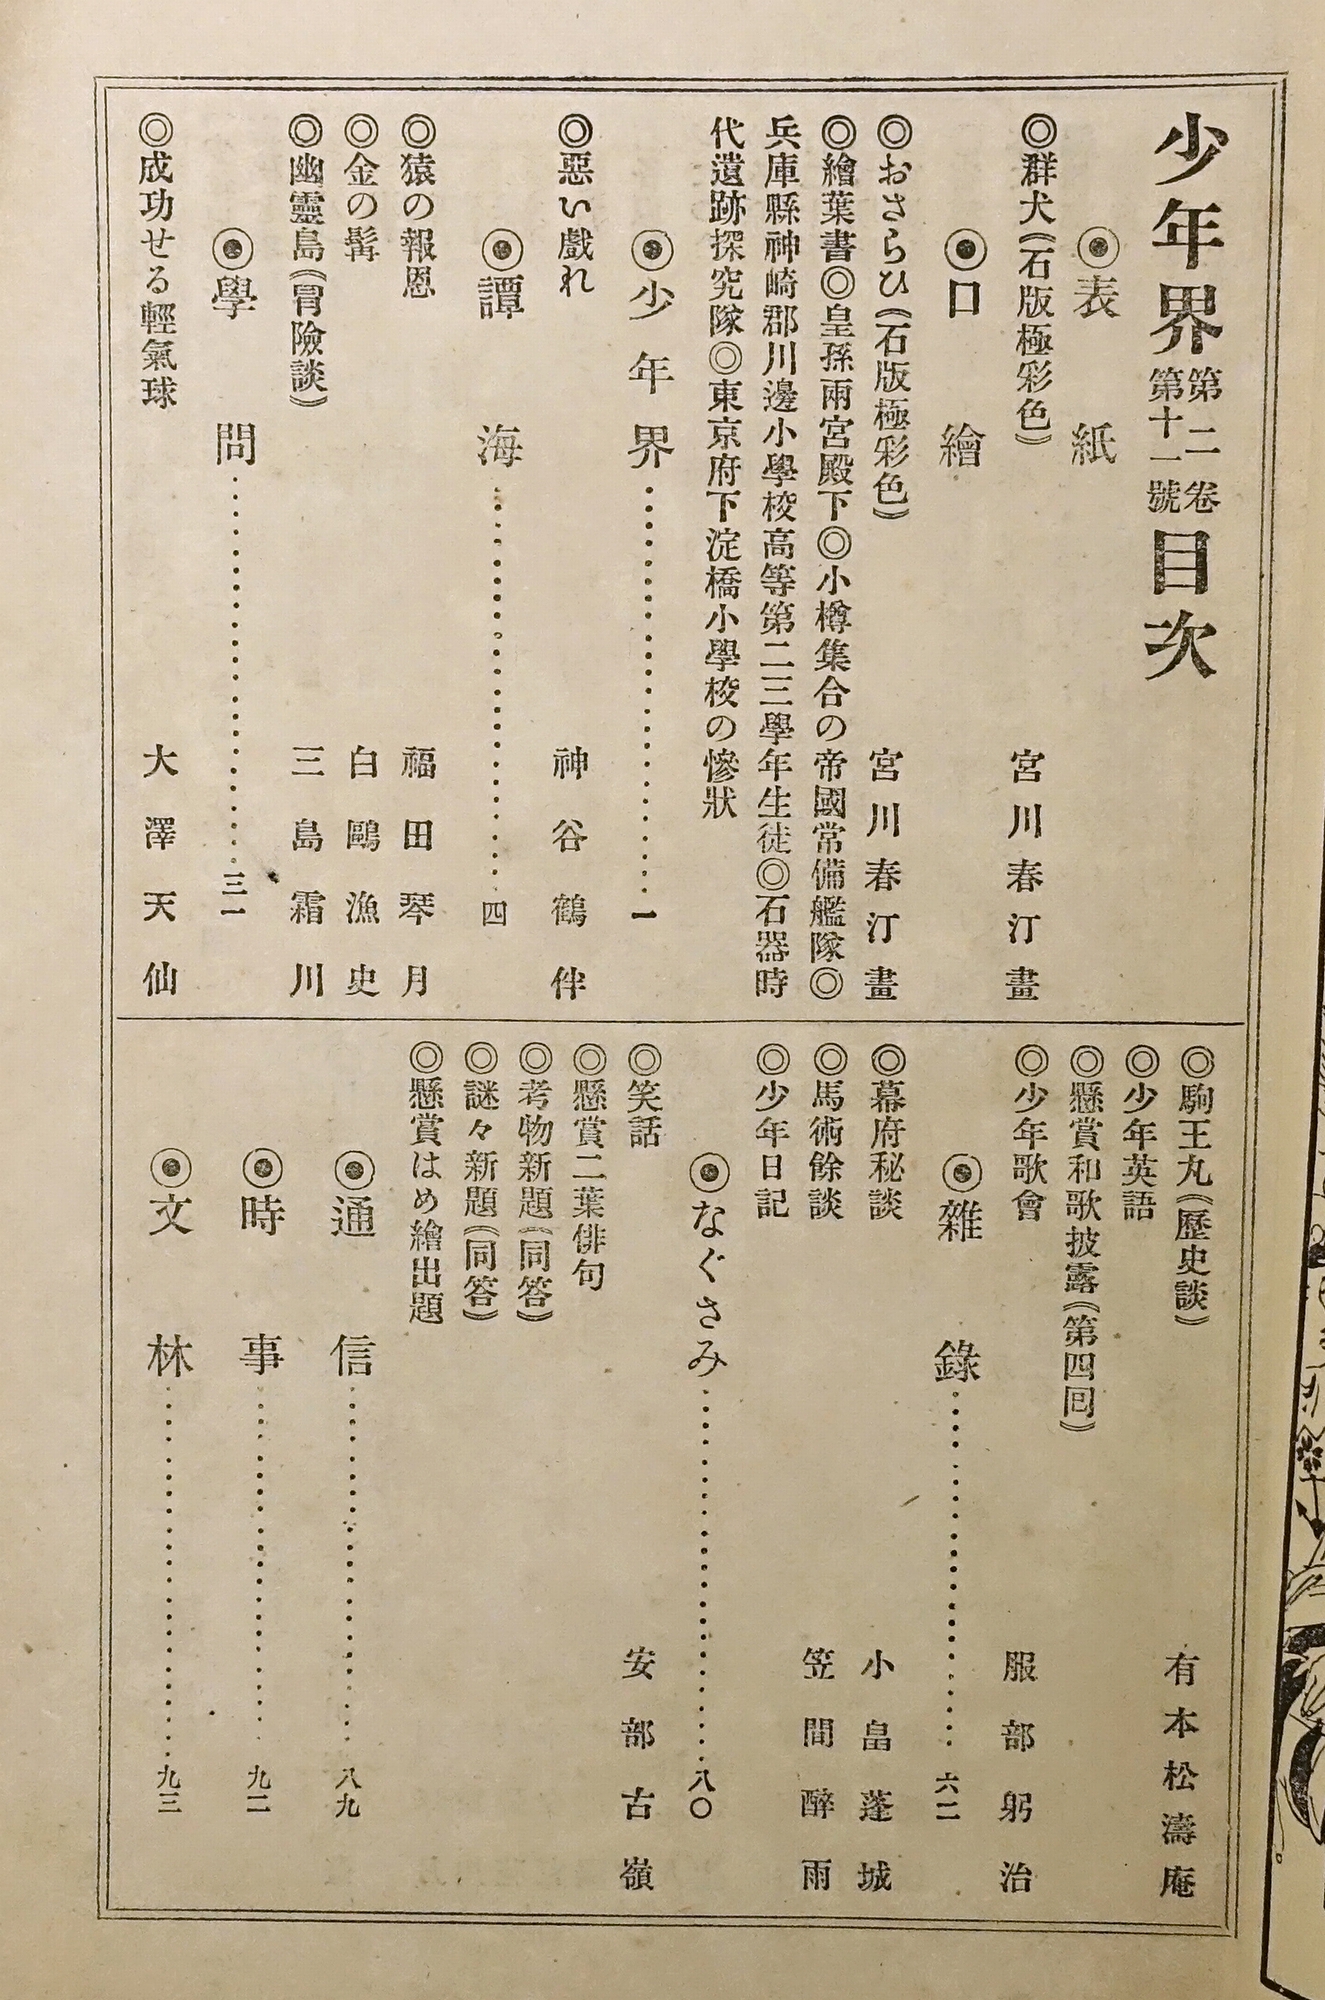 少年界第二卷第十一號目次
◉表紙
◎群犬(石版極彩色) 宮川春汀畫
◉口繪
◎おさらひ(石版極彩色) 宮川春汀畫
◎繪葉書◎皇孫兩宮殿下◎小樽集合の帝國常備艦隊◎
兵庫縣神崎郡川邊小學校高等第二三學年生徒◎石器時
代遺跡探究隊◎東京府下淀橋小學校の慘狀
◉少年界……………一
◎惡い戲れ 神谷鶴伴
◉譚海……………四
◎猿の報恩 福田琴月
◎金の髯 白鷗漁史
◎幽靈島(冐險談) 三島霜川
◉學問……………三一
◎成功せる輕氣球 大澤天仙
◎駒王丸(歷史談) 有本松濤庵
◎少年英語
◎懸賞和歌披露(第四囘)
◎少年歌會 服部躬治
◉雜錄……………六二
◎幕府秘談 小畠蓬城
◎馬術餘談 笠間醉雨
◎少年日記
◉なぐさみ……………八〇
◎笑話 安部古嶺
◎懸賞二葉俳句
◎考物新題(同答)
◎謎々新題(同答)
◎懸賞はめ繪出題
◉通信……………八九
◉時事……………九二
◉文林……………九三